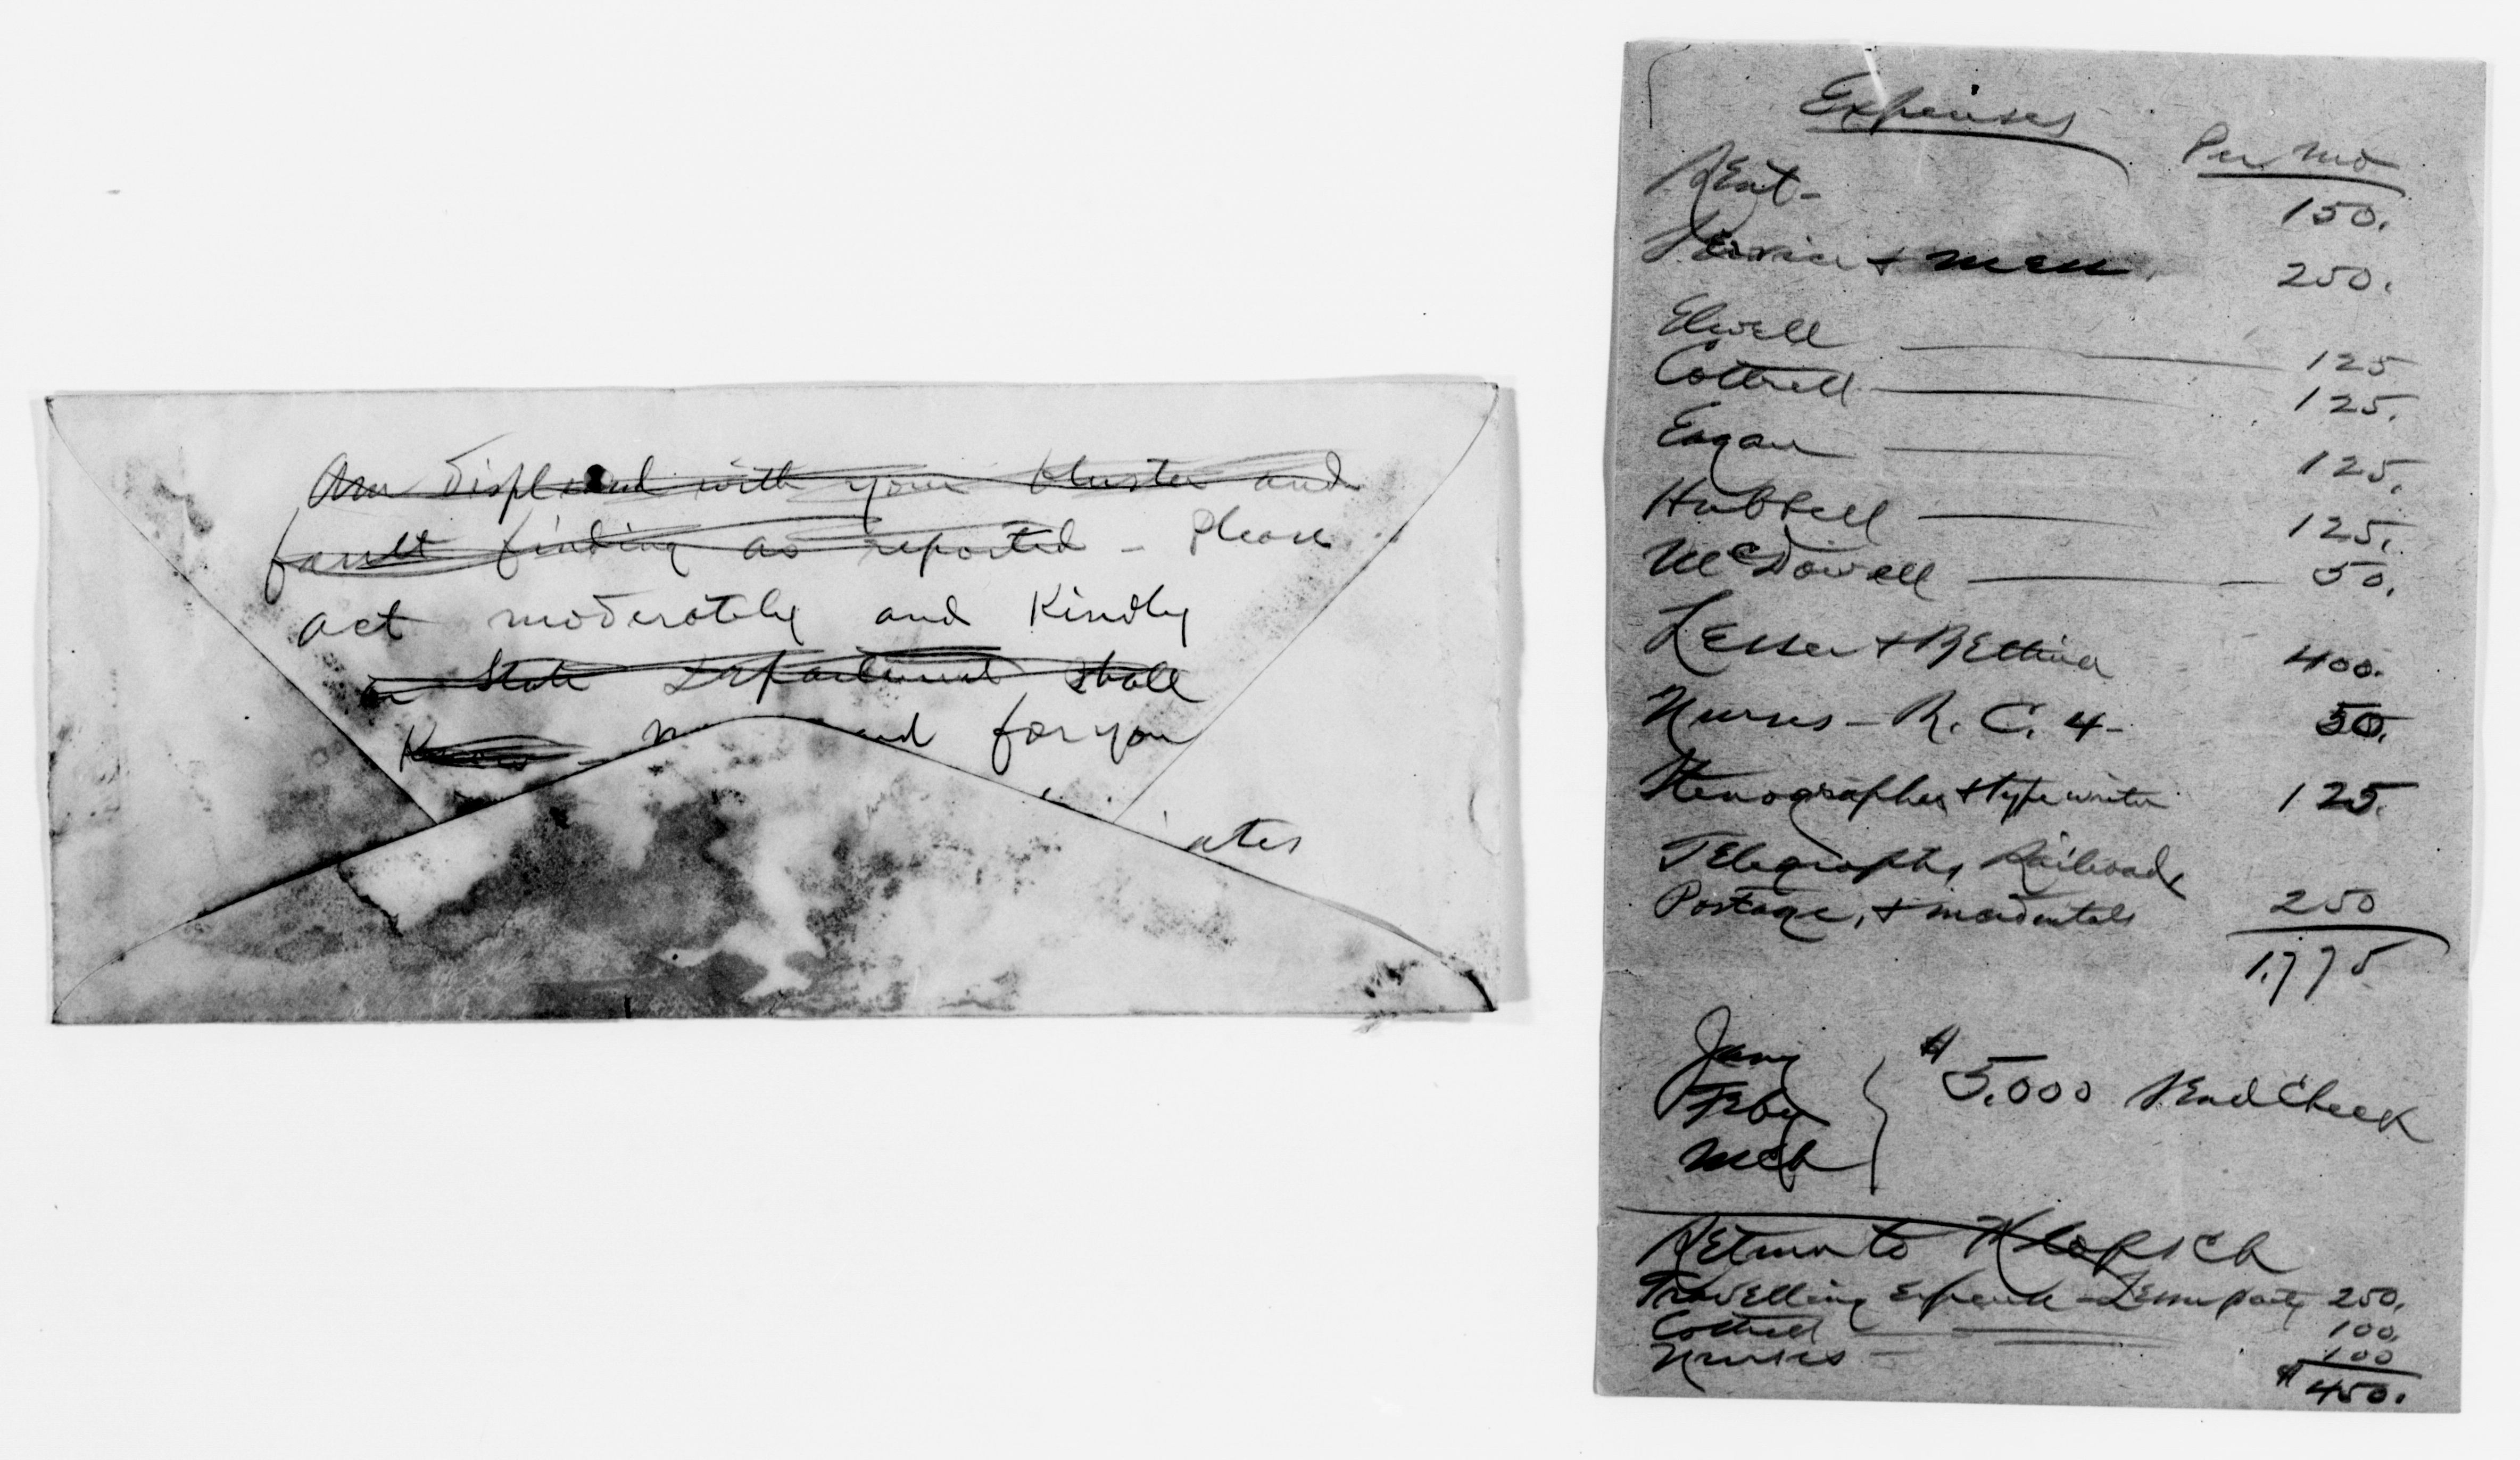 Am displeased with your bluster and
fault finding as reported - Please
act moderately and Kindly
or State Department shall
Know - and for you
ates
Expenses
Per mo
Rent - 150.
Service & mess. 250.
Elwell 125
Cottrell 125.
Eagan 125.
Hubbell 125.
McDowell 50.
Lesser & Bettina 400.
Nurses - R. C. 4 - 50.
Stenographer & typewriter 125.
Telegraphs, Railroads,
Postage, & incidentals 250
1,775
Jany
Feby
Mch
$5.000 Send Check
Return to Klopsch
Travelling Expense - Lesser party 250.
Cottrell 100.
Nurses - 100
$450.